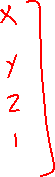 x
y
2
1